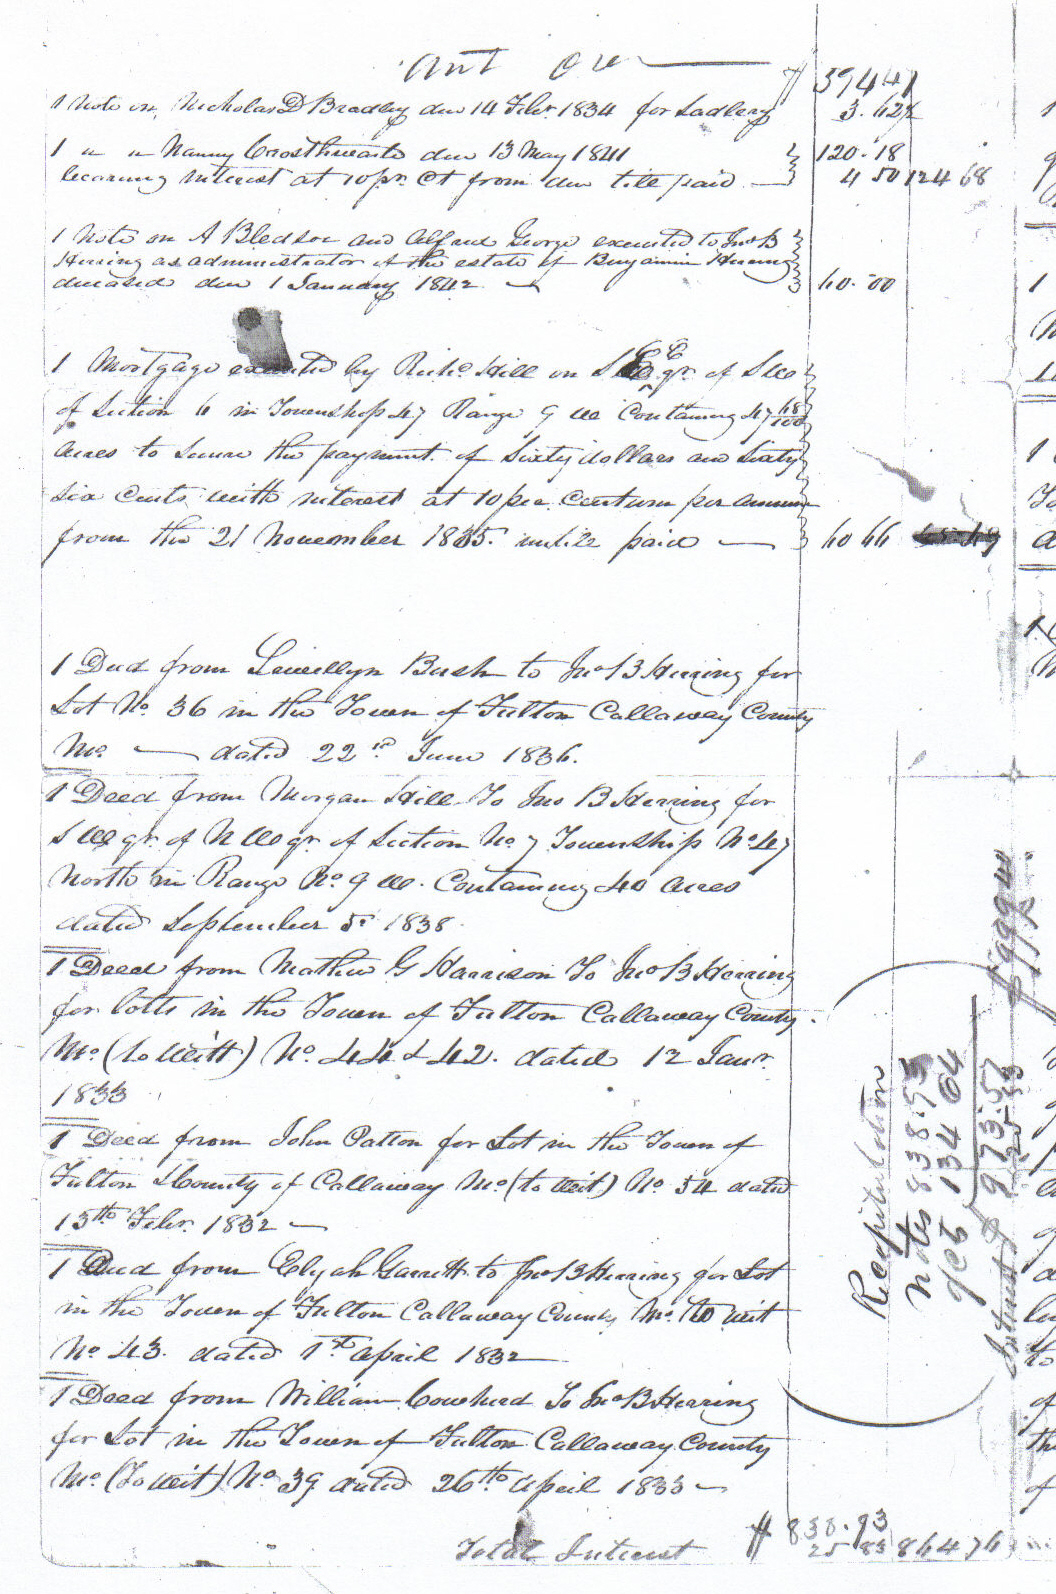 Amt Over $ 594 41
1 Note on Nicholas D Bradley due 14 Febr. 1834 for Sadlery 3.62½
1 " " Nanny Crosthwaite due 13 May 1841 120.18
bearing interest at 10 pr. ct from due till paid 4 50 124 68
1 Note on A Bledsoe and Alfred George executed to Jno B
Herring as administrator of the estate of Benjamin Herring
deceased due 1 January 1842 60.00
1 Mortgage executed by Richd Hill on S E qr. of S W
of Section 6 in Township 47 Range 9 W Containing 47 68/100
acres to secure the payment of Sixty dollars and Sixty
Six Cents with interest at 10 per Centum per annum
from the 21 November 1835 untill paid 60 66
1 Deed from Lewellyn Bush to Jno B Herring for
Lot No. 36 in the Town of Fulton Callaway County
Mo. dated 22nd June 1836.
1 Deed from Morgan Hill To Jno B Herring for
S W qr. of N W qr. of Section No. 7 Township No. 47
North in Range No. 9 W. Containing 40 acres
dated September 5 1838
1 Deed from Mathew G Harrison To Jno B Herring
for lotts in the Town of Fulton Callaway County
Mo. (to Witt) No. 44 & 42. dated 12 Janr.
1833
1 Deed from John Patton for Lot in the Town of
Fulton & County of Callaway Mo (to Wit) No 54 dated
15th Febr. 1832
1 Deed from Elijah Garrett to Jno B Herring for Lot
in the Town of Fulton Callaway County Mo. To Wit
No. 43. dated 1st April 1832
1 Deed from William Cowherd To Jno B Herring
for Lot in the Town of Fulton Callaway County
Mo (To Wit) No. 39 dated 26th April 1833
$ 838.93
Total Interest 25 83 864 76
Recapitulation
Notes 838.93
134 64
$ 973.57
Interest 25 83
$ 999 40